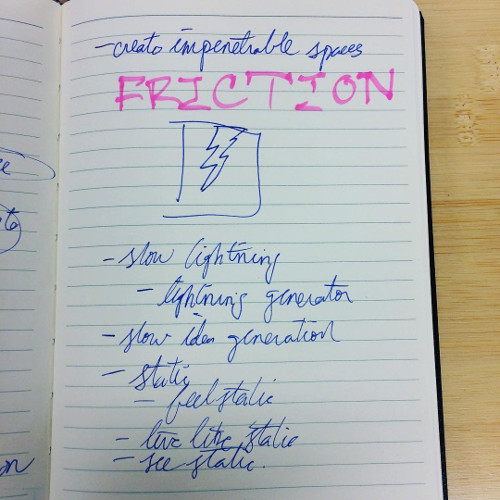 - create impenetrable spaces
FRICTION
- slow lightning
- lightning generator
- slow idea generation
- static
- feel static
- live like static
- see static.